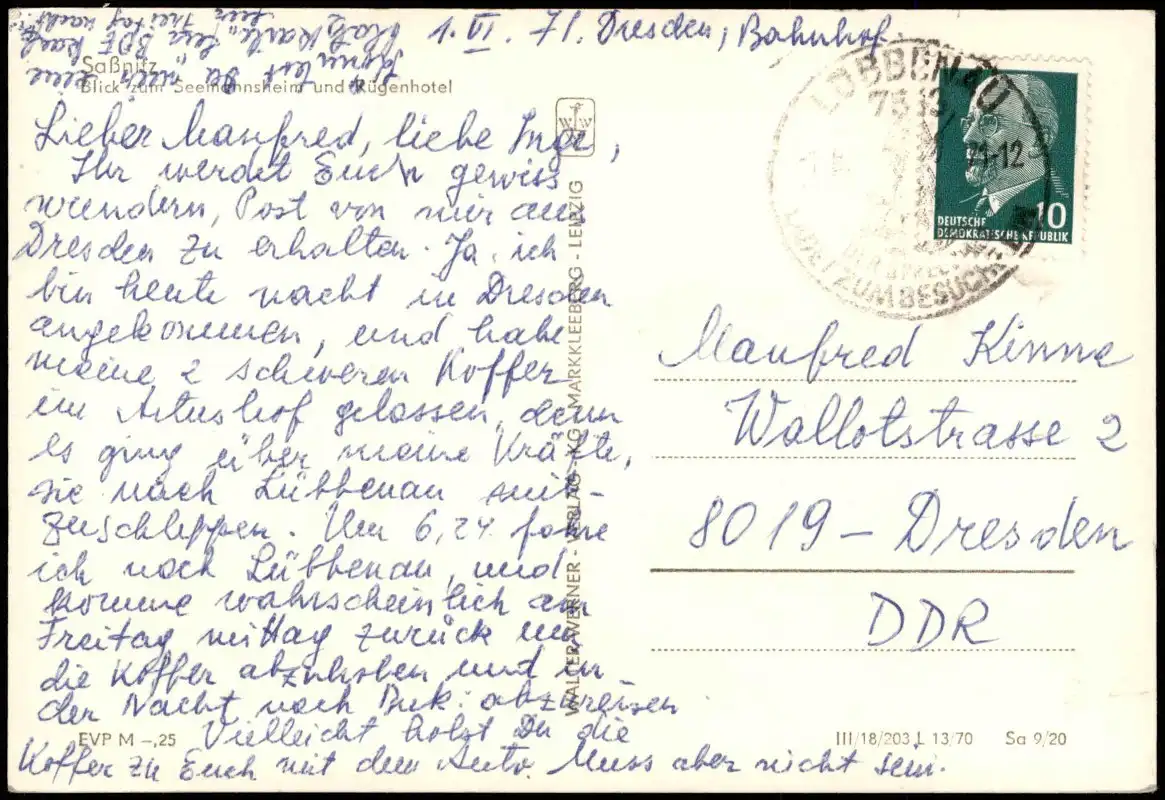 1. IV. 71. Dresden, Bahnhof.
Saßnitz
Blick zum Seemannsheim und Rügenhotel
Lieber Manfred, liebe Inge,
Ihr werdet Euch gewiss
wundern, Post von mir aus
Dresden zu erhalten. Ja, ich
bin heute nacht in Dresden
angekommen, und habe
meine 2 schweren Koffer
im gelassen, denn
es ging über meine Kräfte,
sie nach Lübbenau mit-
zuschleppen. Um 6,24 fahre
ich nach Lübbenau, und
komme wahrscheinlich am
Freitag mittag zurück um
die Koffer abzuholen und in
der Nacht nach Buk. abzureisen
Vielleicht holst Du die
Koffer zu Euch mit dem Auto. Muss aber nicht sein.
WALTER WERNER - VERLAG - KG - MARKKLEEBERG - LEIPZIG
WW
EVP M -,25
LÜBBENAU
ZUM BESUCH
DEUTSCHE
DEMOKRATISCHE REPUBLIK
10
Manfred Kinne
Wallotstrasse 2
8019 - Dresden
DDR
III/18/203 L 13/70 Sa 9/20